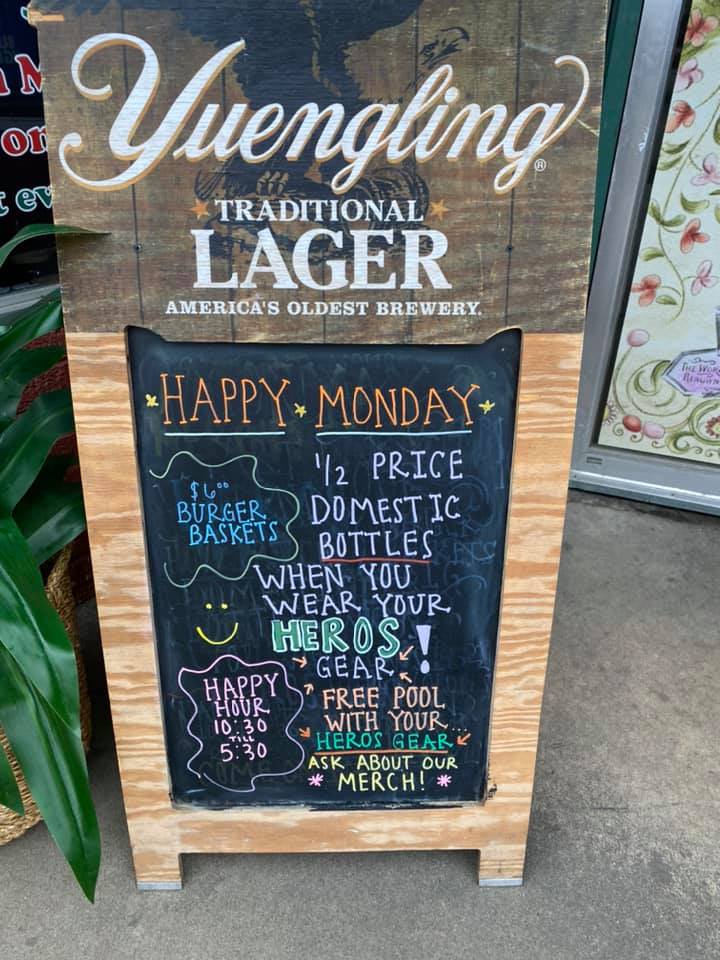 Yuengling®
TRADITIONAL
LAGER
AMERICA'S OLDEST BREWERY.
HAPPY MONDAY
$6⁰⁰
BURGER
BASKETS
1/2 PRICE
DOMESTIC
BOTTLES
WHEN YOU
WEAR YOUR
HEROS
GEAR!
HAPPY
HOUR
10:30
TILL
5:30
FREE POOL
WITH YOUR...
HEROS GEAR
ASK ABOUT OUR
MERCH!